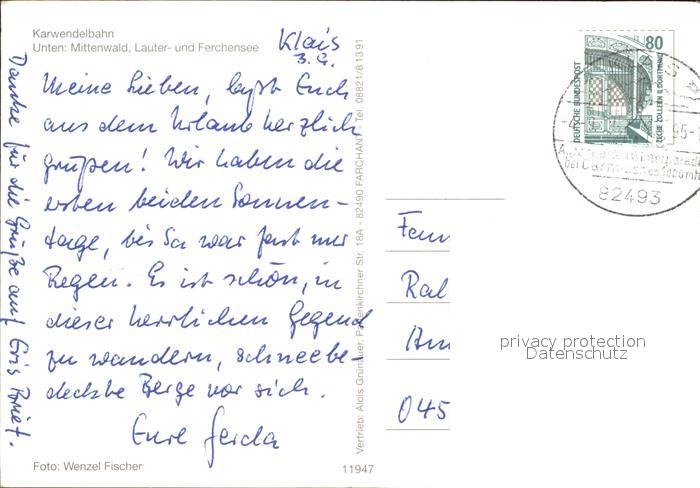 Karwendelbahn
Unten: Mittenwald, Lauter- und Ferchensee
Klais
3.9.
Meine Lieben, laßt Euch
aus dem Urlaub herzlich
grüßen! Wir haben die
ersten beiden Sonnen-
tage, bis Sa war fast nur
Regen. Es ist schön, in
dieser herrlichen Gegend
zu wandern, schneebe-
deckte Berge vor sich.
Eure Gerda
Danke für die Grüße auf Brief.
Foto: Wenzel Fischer
11947
Vertrieb: Alois Grünauer, Partenkirchner Str. 18A - 82490 FARCHANT - Tel. 08821/6 13 91
DEUTSCHE BUNDESPOST
80
ZECHE ZOLLERN II DORTMUND
95-
82493
Fam
Ral
Am
045
privacy protection
Datenschutz